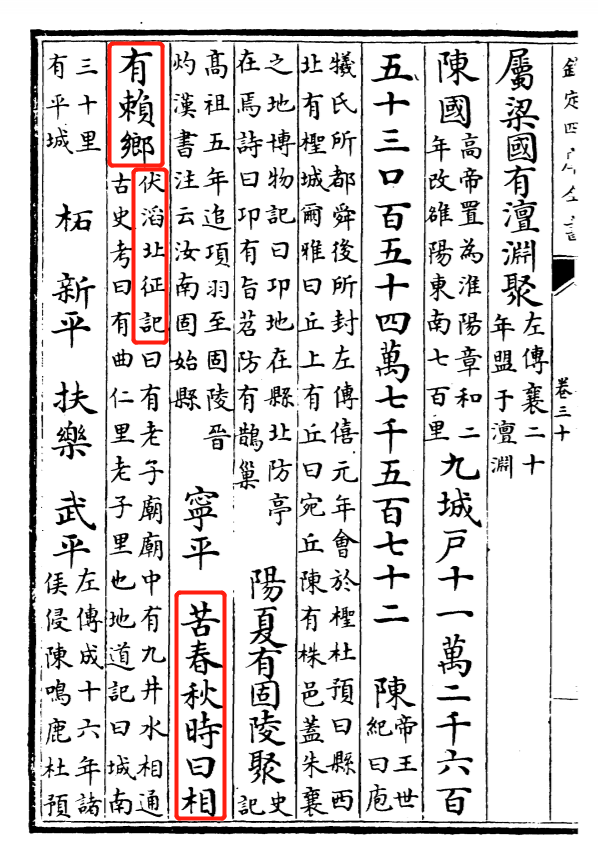 欽定四庫全書
卷三十
屬梁國有澶淵聚
左傳襄二十
年盟于澶淵
陳國
高帝置為淮陽章和二
年改雒陽東南七百里
九城戶十一萬二千六百
五十三口百五十四萬七千五百七十二
陳
帝王世
紀曰庖
犧氏所都舜後所封左傳僖元年會於檉杜預曰縣西
北有檉城爾雅曰丘上有丘曰宛丘陳有株邑蓋朱襄
之地博物記曰邛地在縣北防亭
在焉詩曰邛有旨苕防有鵲巢
陽夏有固陵聚
史
記
高祖五年追項羽至固陵晉
灼漢書注云汝南固始縣
寧平 苦春秋時曰相
有賴鄉
伏滔北征記曰有老子廟廟中有九井水相通
古史考曰有曲仁里老子里也地道記曰城南
三十里
有平城
柘 新平 扶樂 武平
左傳成十六年諸
侯侵陳鳴鹿杜預